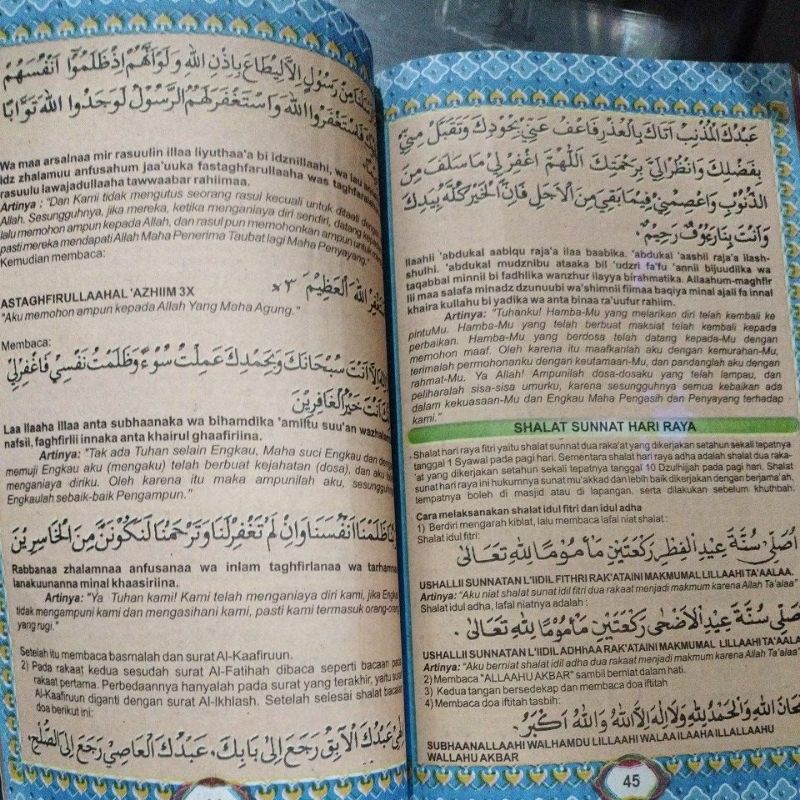 مِنْ رَسُوْلٍ اِلَّا لِيُطَاعَ بِاِذْنِ اللهِ وَلَوْاَنَّهُمْ اِذْظَلَمُوْٓا اَنْفُسَهُمْ
فَاسْتَغْفَرُوااللهَ وَاسْتَغْفَرَلَهُمُ الرَّسُوْلُ لَوَجَدُوا اللهَ تَوَّابًا
Wa maa arsalnaa mir rasuulin illaa liyuthaa'a bi idznillaahi, wa lau
idz zhalamuu anfusahum jaa'uuka fastaghfarullaaha was taghfaralahumur
rasuulu lawajadullaaha tawwaabar rahiimaa.
Artinya : "Dan Kami tidak mengutus seorang rasul kecuali untuk ditaati dengan
Allah. Sesungguhnya, jika mereka, ketika menganiaya diri sendiri, datang
lalu memohon ampun kepada Allah, dan rasul pun memohonkan ampun untuk
pasti mereka mendapati Allah Maha Penerima Taubat lagi Maha Penyayang."
Kemudian membaca:
اللهَ الْعَظِيْمَ ×٣
ASTAGHFIRULLAAHAL 'AZHIIM 3X
"Aku memohon ampun kepada Allah Yang Maha Agung."
Membaca:
اِلَّا اَنْتَ سُبْحَانَكَ وَبِحَمْدِكَ عَمِلْتُ سُوْءً وَظَلَمْتُ نَفْسِيْ فَاغْفِرْلِيْ
اَنْتَ خَيْرُالْغَافِرِيْنَ
Laa ilaaha illaa anta subhaanaka wa bihamdika 'amiltu suu'an wazhalamtu
nafsii, faghfirlii innaka anta khairul ghaafiriina.
Artinya: "Tak ada Tuhan selain Engkau, Maha suci Engkau dan dengan
memuji Engkau aku (mengaku) telah berbuat kejahatan (dosa), dan aku
menganiaya diriku. Oleh karena itu maka ampunilah aku, sesungguhnya
Engkaulah sebaik-baik Pengampun."
ظَلَمْنَا اَنْفُسَنَا وَاِنْ لَمْ تَغْفِرْلَنَا وَتَرْحَمْنَا لَنَكُوْنَنَّ مِنَ الْخَاسِرِيْنَ
Rabbanaa zhalamnaa anfusanaa wa inlam taghfirlanaa wa tarhamnaa
lanakuunanna minal khaasiriina.
Artinya: "Ya Tuhan kami! Kami telah menganiaya diri kami, jika Engkau
tidak mengampuni kami dan mengasihani kami, pasti kami termasuk orang-orang
yang rugi."
Setelah itu membaca basmalah dan surat Al-Kaafiruun.
2) Pada rakaat kedua sesudah surat Al-Fatihah dibaca seperti bacaan pada
rakaat pertama. Perbedaannya hanyalah pada surat yang terakhir, yaitu surat
Al-Kaafiruun diganti dengan surat Al-Ikhlash. Setelah selesai shalat bacalah
doa berikut ini:
عَبْدُكَ الْاٰبِقُ رَجَعَ اِلٰى بَابِكَ. عَبْدُكَ الْعَاصِيْ رَجَعَ اِلَى الصُّلْحِ.
عَبْدُكَ الْمُذْنِبُ اَتَاكَ بِالْعُذْرِ فَاعْفُ عَنِّيْ بِجُوْدِكَ وَتَقَبَّلْ مِنِّيْ
بِفَضْلِكَ وَانْظُرْ اِلَيَّ بِرَحْمَتِكَ اَللّٰهُمَّ اغْفِرْ لِيْ مَا سَلَفَ مِنَ
الذُّنُوْبِ وَاعْصِمْنِيْ فِيْمَا بَقِيَ مِنَ الْاَجَلِ فَاِنَّ الْخَيْرَ كُلَّهُ بِيَدِكَ
وَاَنْتَ بِنَا رَءُوْفٌ رَحِيْمٌ.
Ilaahii 'abdukal aabiqu raja'a ilaa baabika. 'abdukal 'aashii raja'a ilash-
shulhi. 'abdukal mudznibu ataaka bil 'udzri fa'fu 'annii bijuudiika wa
taqabbal minnii bi fadhlika wanzhur ilayya birahmatika. Allaahum-maghfir
lii maa salafa minadz dzunuubi wa'shimnii fiimaa baqiya minal ajali fa innal
khaira kullahu bi yadika wa anta binaa ra'uufur rahiim.
Artinya: "Tuhanku! Hamba-Mu yang melarikan diri telah kembali ke
pintuMu. Hamba-Mu yang telah berbuat maksiat telah kembali kepada
perbaikan. Hamba-Mu yang berdosa telah datang kepada-Mu dengan
memohon maaf. Oleh karena itu maafkanlah aku dengan kemurahan-Mu,
terimalah permohonanku dengan keutamaan-Mu, dan pandanglah aku dengan
rahmat-Mu. Ya Allah! Ampunilah dosa-dosaku yang telah lampau, dan
peliharalah sisa-sisa umurku, karena sesungguhnya semua kebaikan ada
dalam kekuasaan-Mu dan Engkau Maha Pengasih dan Penyayang terhadap
kami."
SHALAT SUNNAT HARI RAYA
Shalat hari raya fitri yaitu shalat sunnat dua raka'at yang dikerjakan setahun sekali tepatnya
tanggal 1 Syawal pada pagi hari. Sementara shalat hari raya adha adalah shalat dua raka-
'at yang dikerjakan setahun sekali tepatnya tanggal 10 Dzulhijjah pada pagi hari. Shalat
sunat hari raya ini hukumnya sunat mu'akkad dan lebih baik dikerjakan dengan berjama'ah,
tempatnya boleh di masjid atau di lapangan, serta dilakukan sebelum khuthbah.
Cara melaksanakan shalat idul fitri dan idul adha
1) Berdiri mengarah kiblat, lalu membaca lafal niat shalat :
Shalat idul fitri:
اُصَلِّيْ سُنَّةَ عِيْدِ الْفِطْرِ رَكْعَتَيْنِ مَأْمُوْمًا لِلّٰهِ تَعَالٰى
USHALLII SUNNATAN L'IIDIL FITHRI RAK'ATAINI MAKMUMAL LILLAAHI TA'AALAA.
Artinya: "Aku niat shalat sunnat idul fitri dua rakaat menjadi makmum karena Allah Ta'alaa"
Shalat idul adha, lafal niatnya adalah :
اُصَلِّيْ سُنَّةَ عِيْدِ الْاَضْحٰى رَكْعَتَيْنِ مَأْمُوْمًا لِلّٰهِ تَعَالٰى.
USHALLII SUNNATAN L'IIDIL ADHHAA RAK'ATAINI MAKMUMAL LILLAAHI TA'AALA
Artinya: "Aku berniat shalat idil adha dua rakaat menjadi makmum karena Allah Ta'alaa"
2) Membaca "ALLAAHU AKBAR" sambil berniat dalam hati.
3) Kedua tangan bersedekap dan membaca doa iftitah
4) Membaca doa iftitah tasbih:
اللهِ وَالْحَمْدُ لِلّٰهِ وَلَا اِلٰهَ اِلَّا اللهُ وَاللهُ اَكْبَرُ.
SUBHAANALLAAHI WALHAMDU LILLAAHI WALAA ILAAHA ILLALLAAHU
WALLAHU AKBAR
45